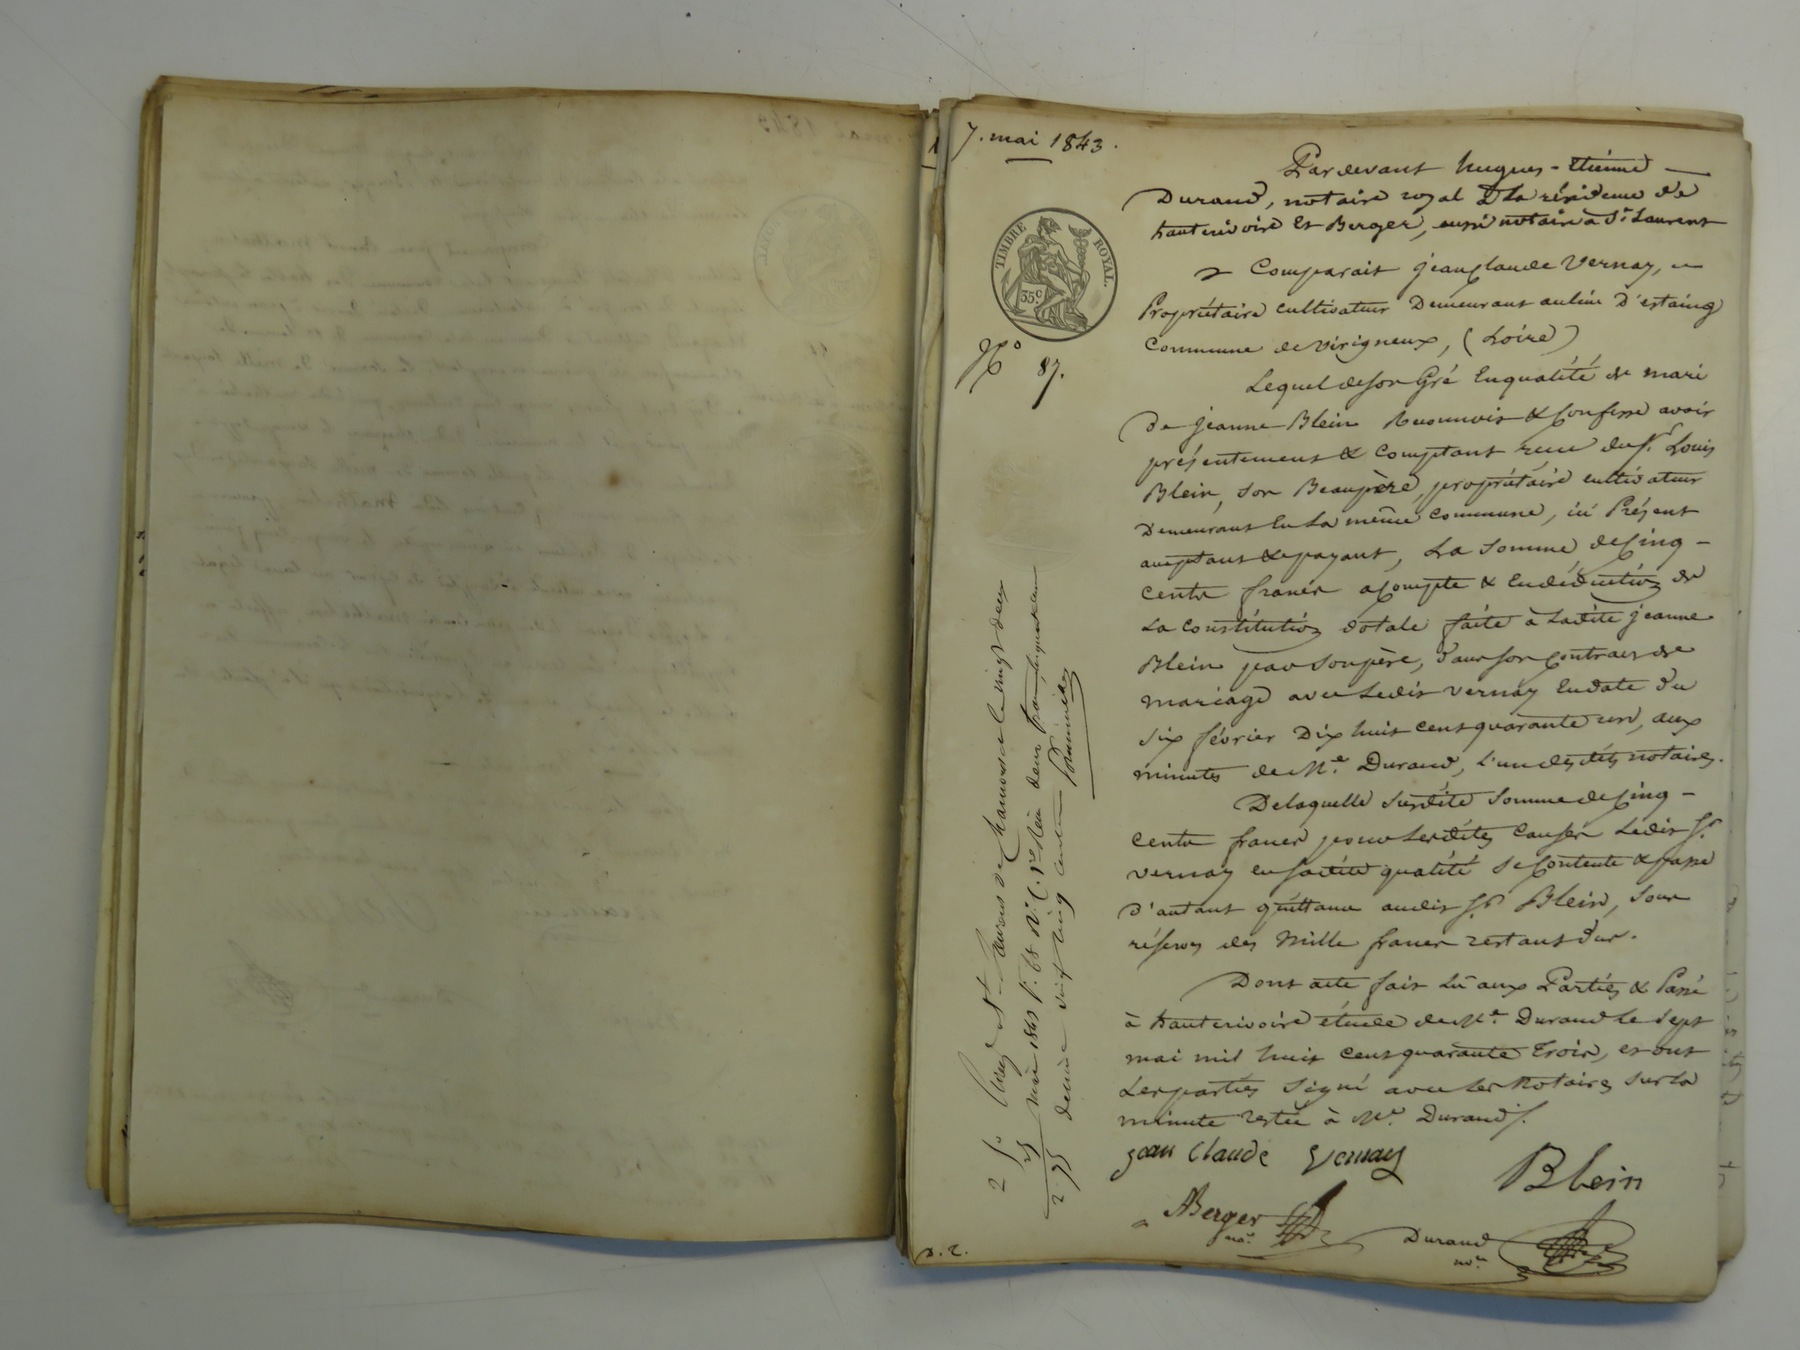 7. mai 1843.
TIMBRE ROYAL.
35c.
No 87.
Pardevant hugues-Etienne
Durand, notaire royal à la résidence de
hauterivoire Et Berger, aussi notaire à St. Laurent
Comparait jean Claude Vernay,
Propriétaire cultivateur Demeurant au lieu D'estaing
Commune de virigneux, (Loire)
Lequel de son Gré En qualité de mari
De jeanne Blein Reconnoit & Confesse avoir
présentement & Comptant reçu du Sr. Louis
Blein, Son Beaupère, propriétaire cultivateur
Demeurant En la même commune, ici Présent
acceptant & payant, La Somme de Cinq-
Cents francs acompte & En déduction de
La Constitution dotale faite à Ladite jeanne
Blein par son père, dans son Contract de
mariage avec Ledit vernay En date du
Six février Dix huit cent quarante un, aux
minutes de Me. Durand, L'un desdits notaires.
De laquelle susdite Somme de Cinq-
cents francs pour Lesdites Causes Ledit Sr.
vernay en sadite qualité Se Contente & passe
D'autant quittance audit Sr. Blein, Sous
réserves des Mille francs restant dus.
Dont acte fait Lu aux Parties & Passé
à hauterivoire étude de Me. Durand Le Sept
mai mil huit Cent quarante Trois, et ont
Les parties Signé avec Les Notaires Sur La
minute restée à Me. Durand.
jean Claude Vernay
Blein
ABerger
nre.
Durand
nre.
2 fo
25
2.75
St. Laurent de Chamousset Le vingt deux
mai 1843 fo. 68 Ro. C. 1re reçu deux francs cinquante
décime vingt cinq centimes
D. 2.